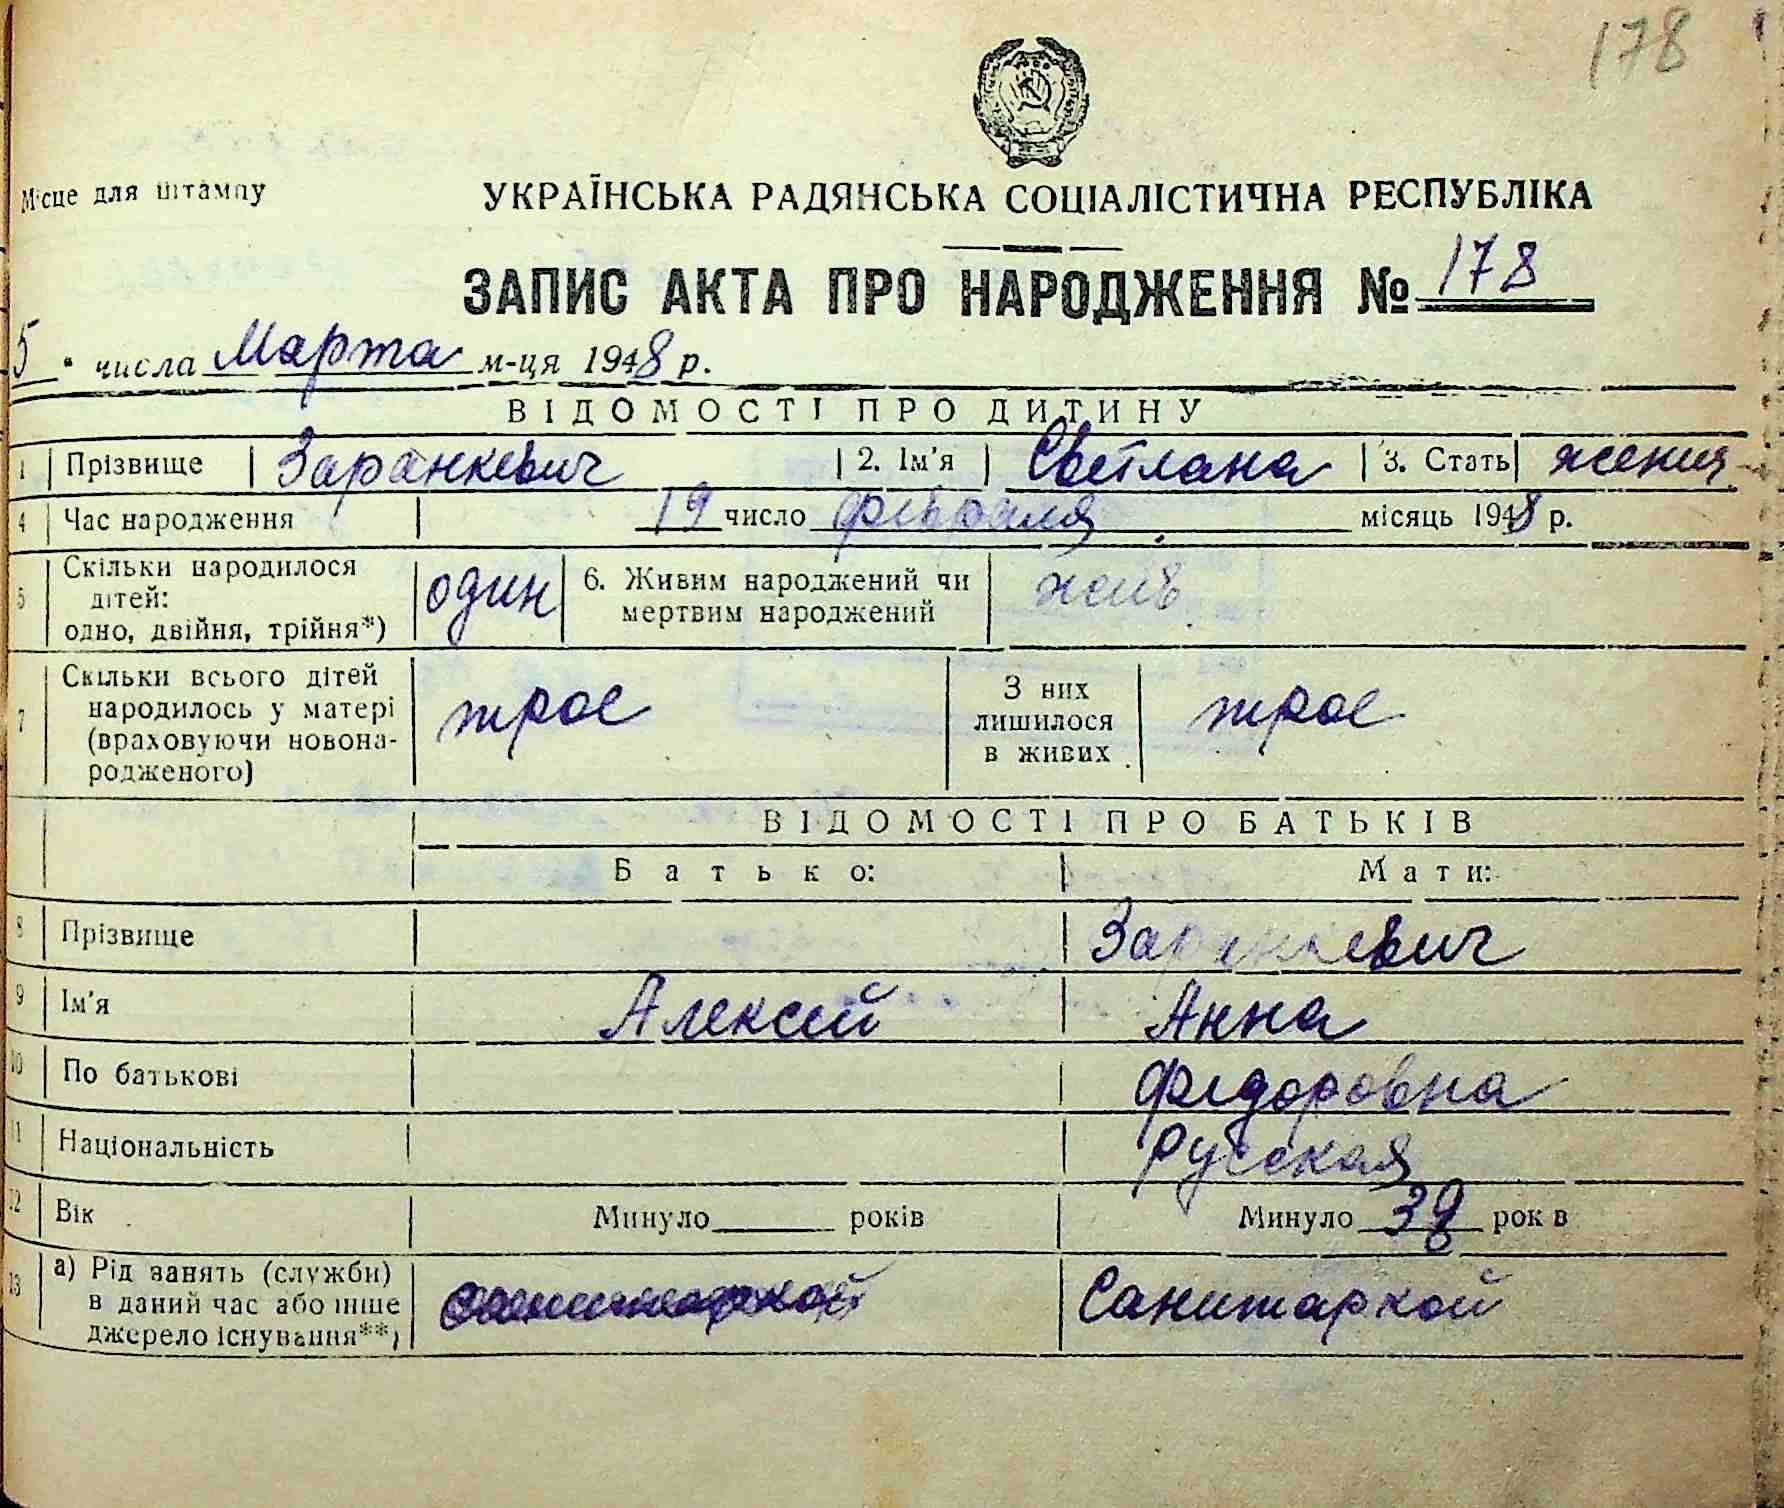 178
Місце для штампу
УКРАЇНСЬКА РАДЯНСЬКА СОЦІАЛІСТИЧНА РЕСПУБЛІКА
ЗАПИС АКТА ПРО НАРОДЖЕННЯ № 178
5 числа Марта м-ця 1948 р.
ВІДОМОСТІ ПРО ДИТИНУ
1 Прізвище Заранкевич 2. Ім'я Светлана 3. Стать
4 Час народження 19 число февраля місяць 1948 р.
5 Скільки народилося
дітей:
одно, двійня, трійня*) один 6. Живим народжений чи
мертвим народжений жив
7 Скільки всього дітей
народилось у матері
(враховуючи новона-
родженого) трое З них
лишилося
в живих трое
ВІДОМОСТІ ПРО БАТЬКІВ
Батько: Мати:
8 Прізвище Заранкевич
9 Ім'я Алексей Анна
10 По батькові Федоровна
11 Національність русская
12 Вік Минуло років Минуло рок в
13 а) Рід занять (служби)
в даний час або інше
джерело існування**) санитаркой Санитаркой